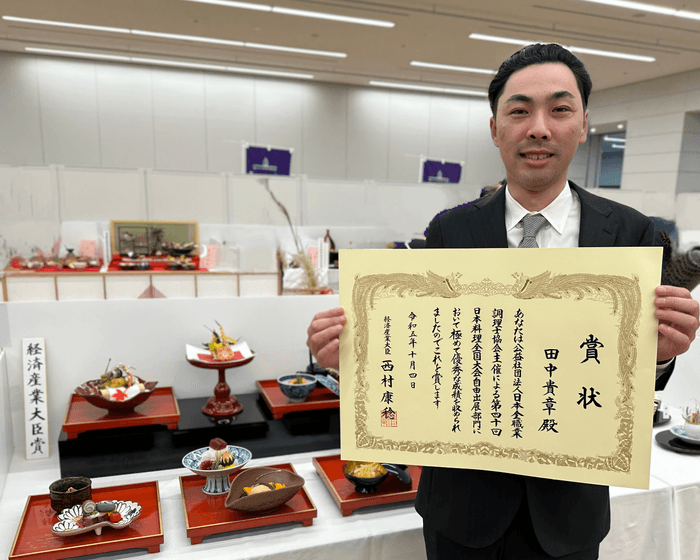 経済産業大臣賞
賞状
田中貴章殿
あなたは公益社団法人日本全職業
調理士協会主催による第四十回
日本料理全国大会自由出展部門に
おいて極めて優秀な成績を収められ
ましたのでこれを賞します
令和五年十月四日
経済産業大臣 西村康稔